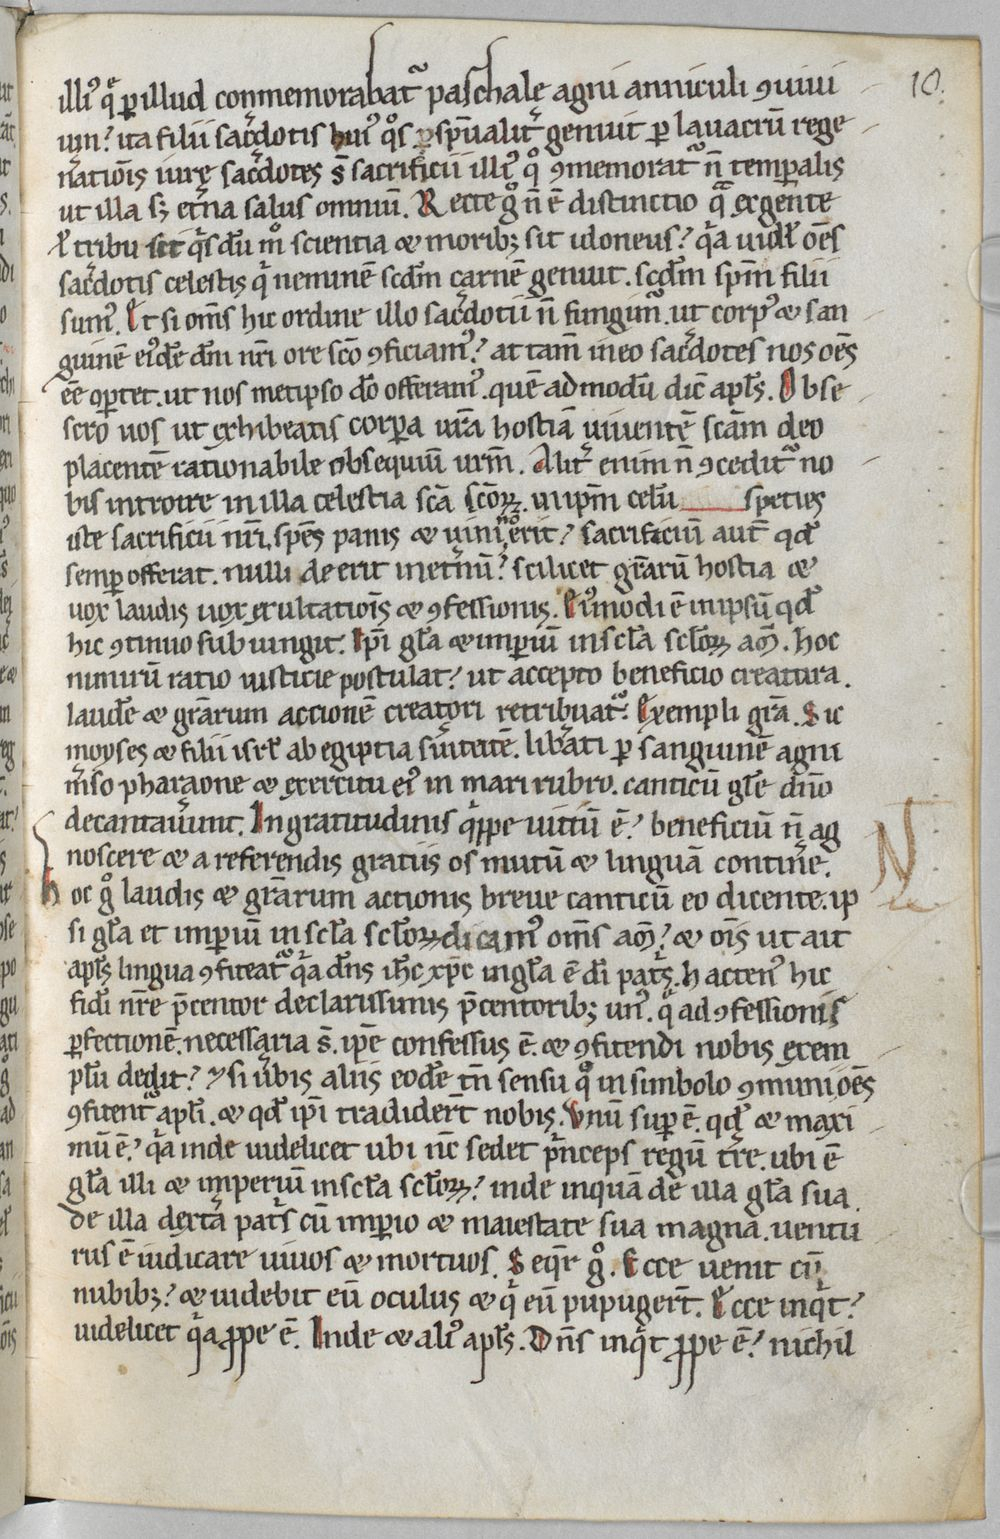 illiꝰ q̄ ꝑ illud conmemorabat᷑ paschalę agni anniculi ꝯuiui
um? ita filii sac̄dotis huiꝰ q°s ꝑ sp̄ualit̄ genuit ꝑ lauacrū rege
nat̄iōis iurę sac̄dotes s̄ sacrificii illiꝰ q° ꝯmemorat᷑ n̄ temꝑalis
ut illa sꝫ et̄na salus omniū. Recte g° n̄ ē distinctio q̄ ex gente
ł tribu sit q̄s dū m° scientia & moribꝫ sit idoneus? q̄a uidel̄ oēs
sac̄dotis celestis q̄ neminē scd̄m carnē genuit. scd̄m sp̄m filii
sumꝰ. Et si om̄s hic ordine illo sac̄dotii n̄ fungim᷑. ut corpꝰ & san
guinē eiꝰdē dn̄i nr̄i ore sc̄o ꝯficiamꝰ? at tam̄ in eo sac̄dotes nos oēs
eē oꝑtet. ut nos metipso dō offeramꝰ. quē ad modū dic̄ apl̄s. Obse
cro uos ut exhibeatis corꝑa ur̄a hostiā uiuentē sc̄am deo
placentē rat̄ionabile obsequiū ur̄m. Alit̄ enim n̄ ꝯcedit᷑ no
bis introire in illa celestia sc̄a sc̄oꝝ. in ip̄m celū speties
iste sacrificii nr̄i, sp̄es panis & uini n° erit? sacrificiū aut̄ qd̄
semꝑ offerat. nulli de erit in et̄nū? scilicet gr̄arū hostia &
uox laudis uox exultatiōis & ꝯfessionis. Eiꝰmodi ē in ipsū qd̄
hic ꝯtinuo subiungit. Ip̄i gl̄a & imꝑiū in scl̄a scl̄oꝝ am̄. Hoc
nimirū ratio iusticie postulat? ut accepto beneficio creatura.
laudē & gr̄arum accionē creatori retribuat᷑. Exempli gr̄a. Sic
moyses & filii isrl̄ ab egiptia s̄uitutē. lib̄ati ꝑ sanguinē agni
m̄so pharaone & exercitu eiꝰ in mari rubro. canticū gl̄e dn̄o
decantau̅unt. Ingratitudinis q̄ppe uitiū ē? beneficiū n̄ ag
noscere & a referendis gratiis os mutū & linguā contin̄e.
Hoc g° laudis & gr̄arum actionis breue canticū eo dicente. ip
si gl̄a et imꝑiū in scl̄a scl̄oꝝ dicamꝰ om̄s am̄? & oīs ut ait
apl̄s lingua ꝯfiteat᷑ q̄a dn̄s ih̄c xp̄c in gl̄a ē dī pat̄s. Hactenꝰ hic
fidī nr̄e p̄centor declarissimis p̄centoribꝫ unꝰ. q̄ ad ꝯfessionis
ꝑfectionē. necessaria s̄. ip̄e confessus ē. & ꝯfitendi nobis exem
plū dedit? ⁊ si u̅bis aliis eodē tn̄ sensu q° in simbolo ꝯmuni oēs
ꝯfitent᷑ apl̄i. & qd̄ ip̄i tradider̄t nobis. Vnū suꝑ ē. qd̄ & maxi
mū ē? q̄a inde uidelicet ubi nc̄ sedet p̄nceps regū t̄re. ubi ē
gl̄a illi & imperiū in scl̄a scl̄oꝝ? inde inquā dē illa gl̄a sua.
de illa dext̄a pat̄s cū imꝑio & maiestate sua magna. uentu
rus ē iudicare uiuos & mortuos. Seqr̄ g°. Ecce uenit cū
nubibꝫ? & uidebit eū oculus & q̄ eū pupuger̄t. Ecce inq̄t?
uidelicet q̄a ꝓpe ē. Inde & aliꝰ apl̄s. Dn̄s inq̄t ꝓpe ē? nichil
10.
N